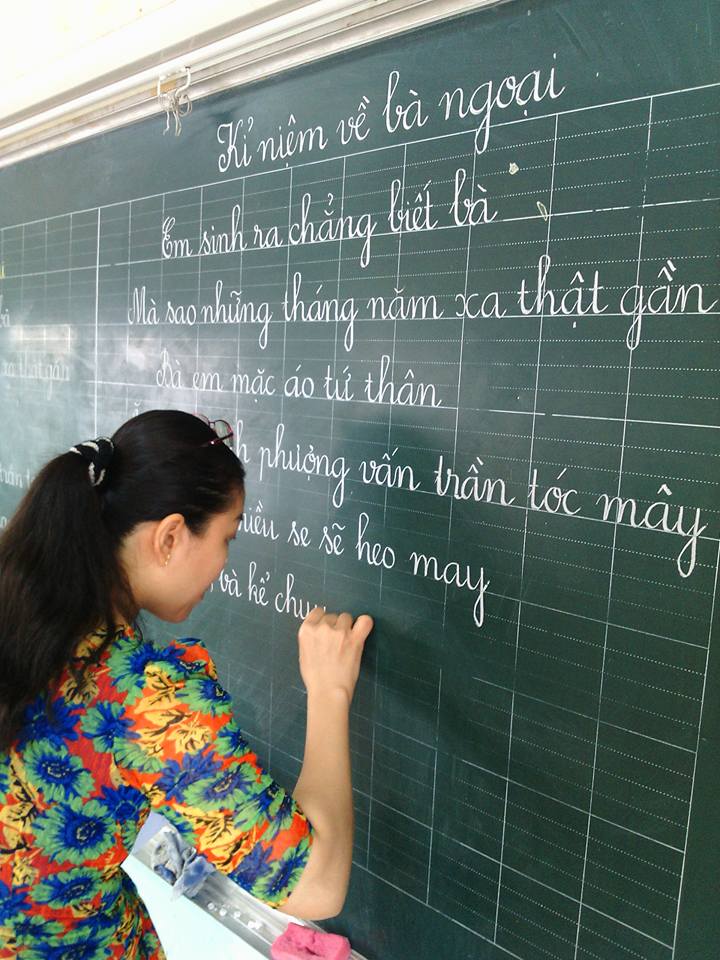 Kỉ niệm về bà ngoại
Em sinh ra chẳng biết bà
Mà sao những tháng năm xa thật gần
Bà em mặc áo tứ thân
phượng vấn trần tóc mây
se sẽ heo may
bà kể
xa thật gần